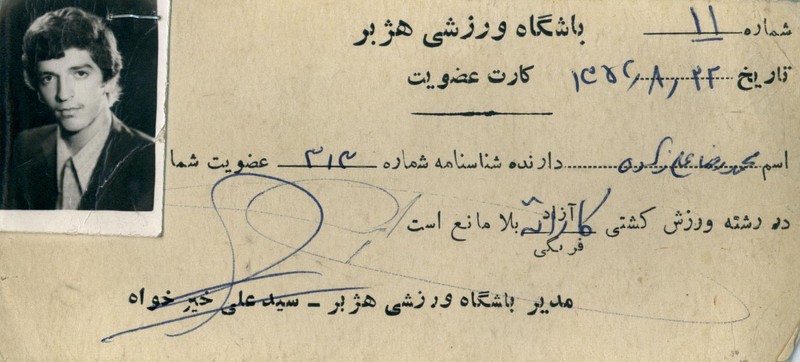 باشگاه ورزشی هژبر
شماره ۱۱
کارت عضویت
تاریخ ۱۳۵۲٫۸٫۲۲
اسم محمدرضا دارنده شناسنامه شماره ۳۱۳ عضویت شما
در رشته ورزش کشتی آزاد فرنگی کاراته بلا مانع است
مدیر باشگاه ورزشی هژبر - سید علی خیرخواه